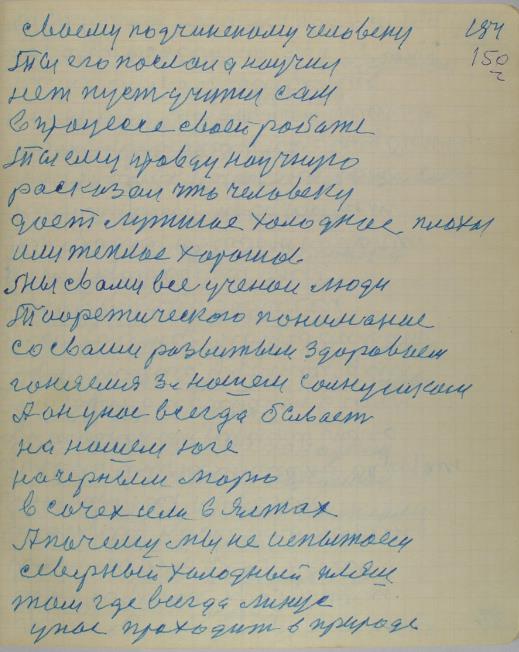 своему подчиненому человеку 184
Ты его послал а научил 150
нет пуст учится сам
в процессе своей работе
Ты ему правду научную
расказал что человеку
дает лутшее холодное плохое
или теплое хорошое
Мы с вами все ученои люди
Теоретического понимание
со своим развитым здоровием
гоняемя за нашем солнушком
А он у нас всегда бывает
на нашем юге
на черным море
в сочех или в Ялтах
А почему мы не испытаем
северный холодный пляж
там где всегда минус
у нас проходит в природе